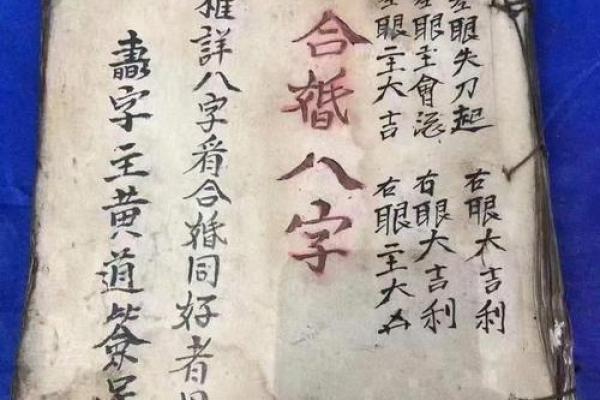 左眼失刀起 右眼大吉利
左眼主會 右眼大吉利
左眼二主大吉 右眼二主大凶
合婚八字
推詳八字看合婚同好者
字主黄道